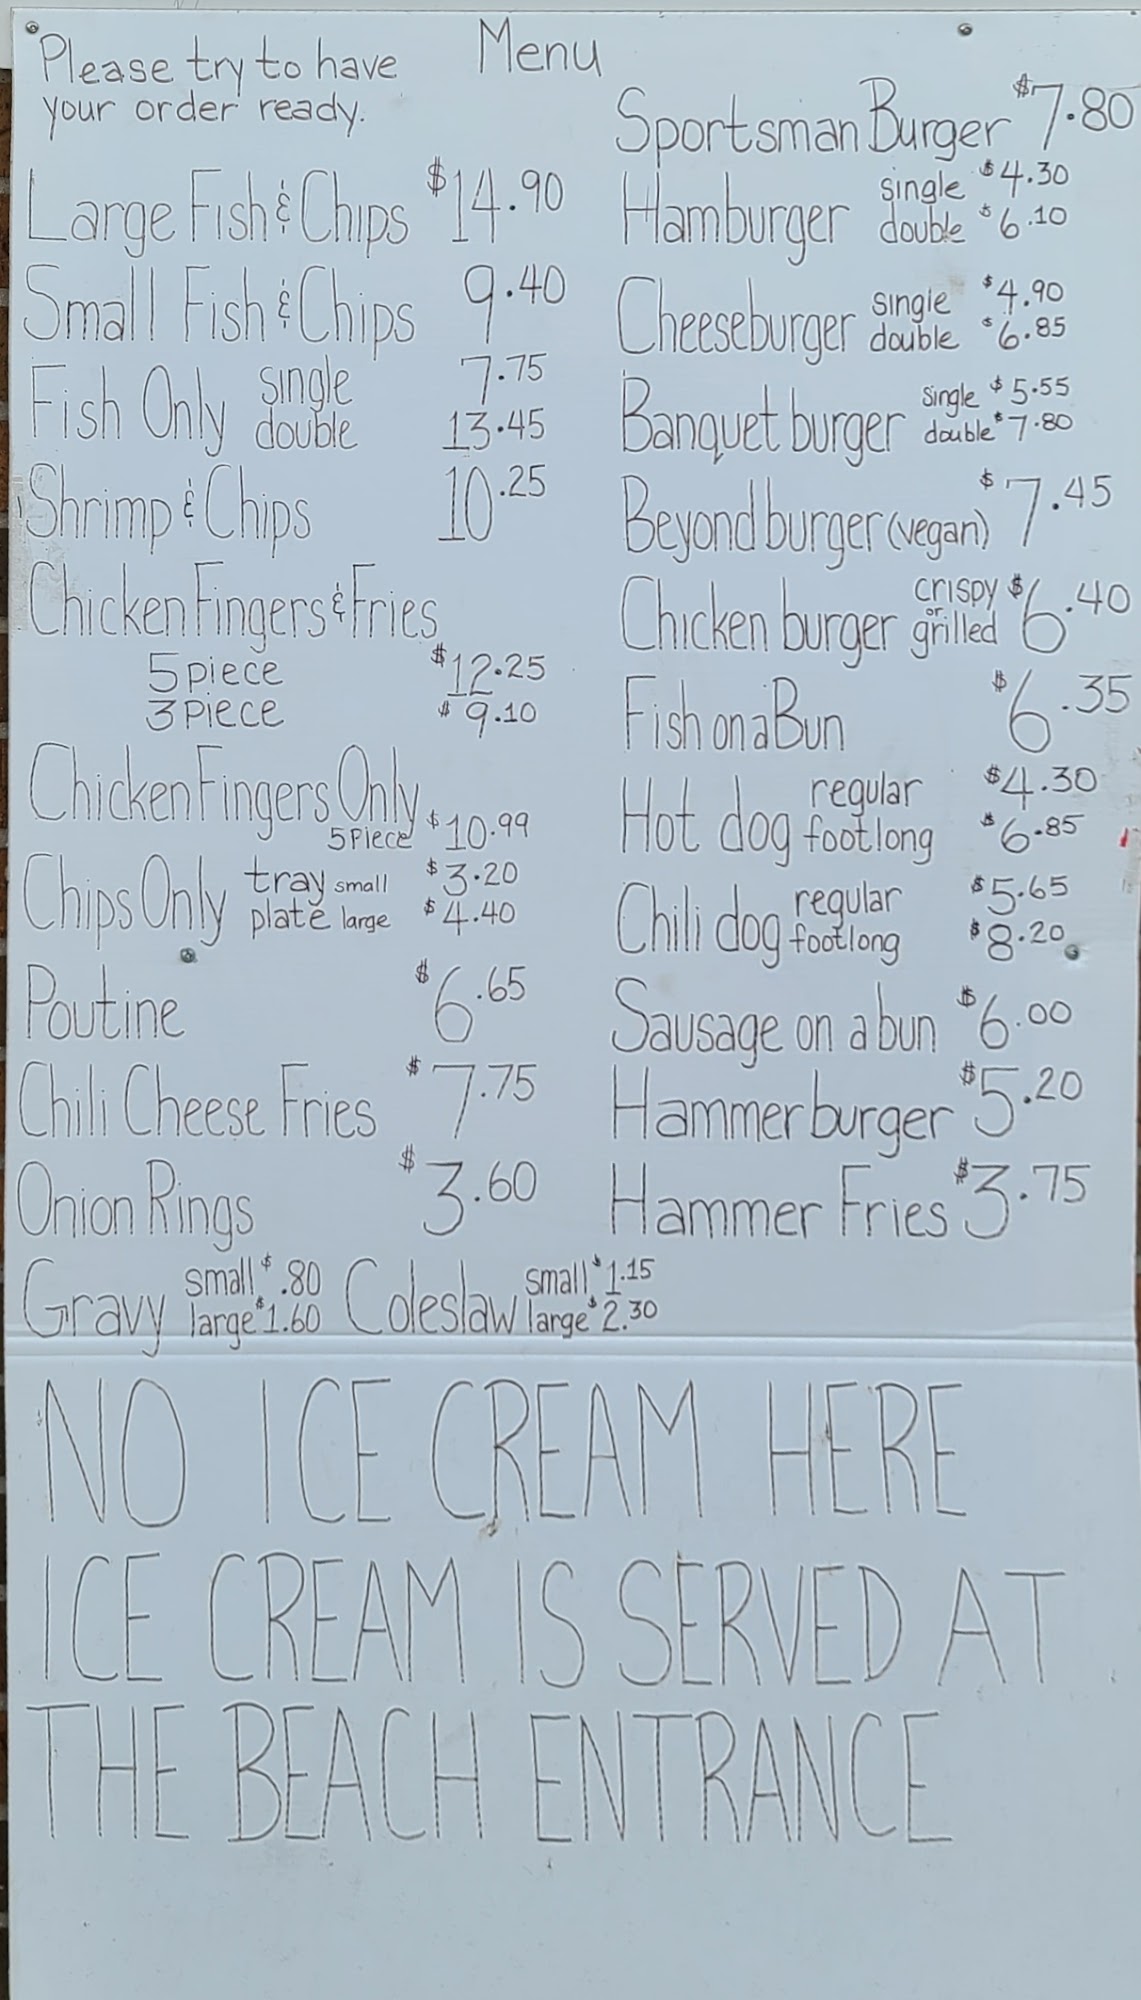 Menu
Please try to have
your order ready.
Large Fish & Chips $14.90
Small Fish & Chips 9.40
Fish Only single 7.75
double 13.45
Shrimp & Chips 10.25
Chicken Fingers & Fries
5 piece $12.25
3 piece $9.10
Chicken Fingers Only
5 Piece $10.99
Chips Only tray small $3.20
plate large $4.40
Poutine $6.65
Chili Cheese Fries $7.75
Onion Rings $3.60
Gravy small $.80
large $1.60
Coleslaw small $1.15
large $2.30
Sportsman Burger $7.80
Hamburger single $4.30
double $6.10
Cheeseburger single $4.90
double $6.85
Banquet burger single $5.55
double $7.80
Beyond burger (vegan) $7.45
Chicken burger crispy or grilled $6.40
Fish on a Bun $6.35
Hot dog regular $4.30
footlong $6.85
Chili dog regular $5.65
footlong $8.20
Sausage on a bun $6.00
Hammer burger $5.20
Hammer Fries $3.75
NO ICE CREAM HERE
ICE CREAM IS SERVED AT
THE BEACH ENTRANCE